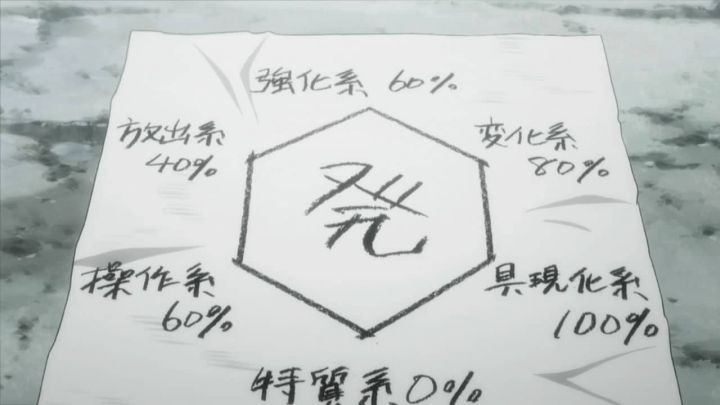 強化系 60%
放出系
40%
変化系
80%
発
操作系
60%
具現化系
100%
特質系0%